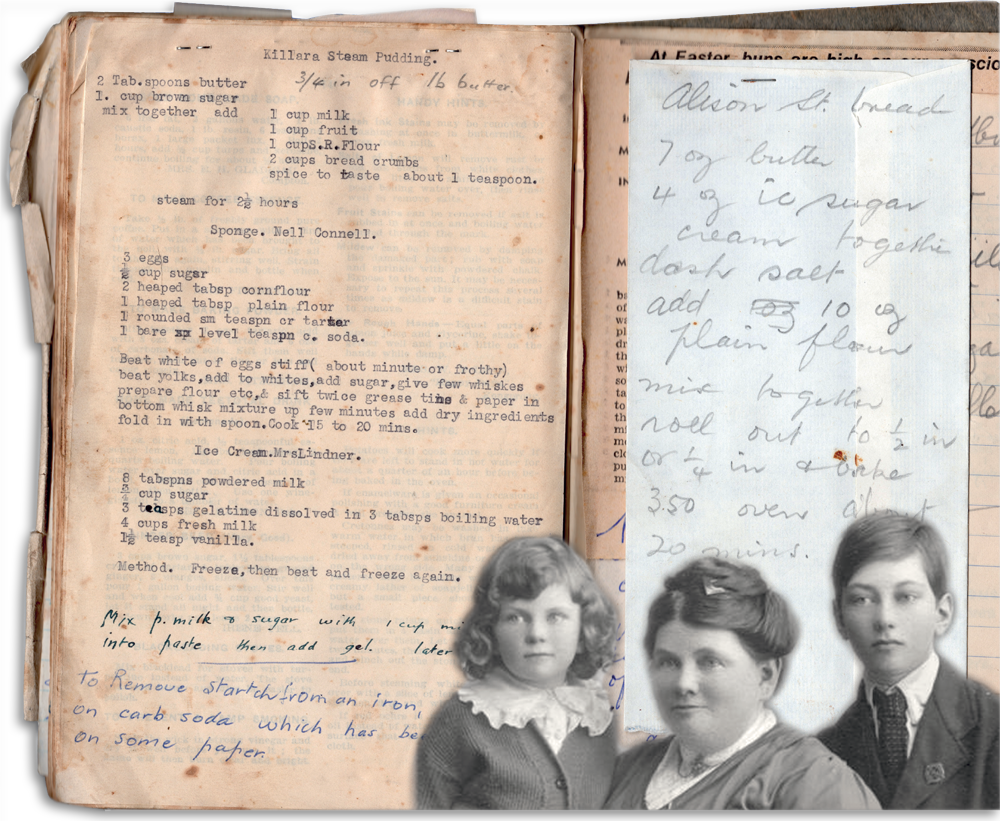 Killara Steam Pudding.
3/4 in off lb butter.
2 Tab.spoons butter
1. cup brown sugar
mix together add
1 cup milk
1 cup fruit
1 cupS.R.Flour
2 cups bread crumbs
spice to taste about 1 teaspoon.
steam for 2½ hours
Sponge. Nell Connell.
3 eggs
½ cup sugar
2 heaped tabsp cornflour
1 heaped tabsp plain flour
1 rounded sm teaspn cr tartar
1 bare level teaspn c. soda.
Beat white of eggs stiff( about minute or frothy)
beat yolks,add to whites,add sugar,give few whiskes
prepare flour etc,& sift twice grease tins & paper in
bottom whisk mixture up few minutes add dry ingredients
fold in with spoon.Cook 15 to 20 mins.
Ice Cream.MrsLindner.
8 tabspns powdered milk
cup sugar
3 teasps gelatine dissolved in 3 tabsps boiling water
4 cups fresh milk
1½ teasp vanilla.
Method. Freeze,then beat and freeze again.
Mix p. milk & sugar with 1 cup mi
into paste then add gel. later
To Remove starch from an iron,
on carb soda which has be
on some paper.
At Easter, buns are high on
Alison St. bread
7 oz butter
4 oz ic sugar
cream together
dash salt
add 10 oz
plain flour
mix together
roll out to ½ in
or ¼ in & bake
3.50 oven about
20 mins.